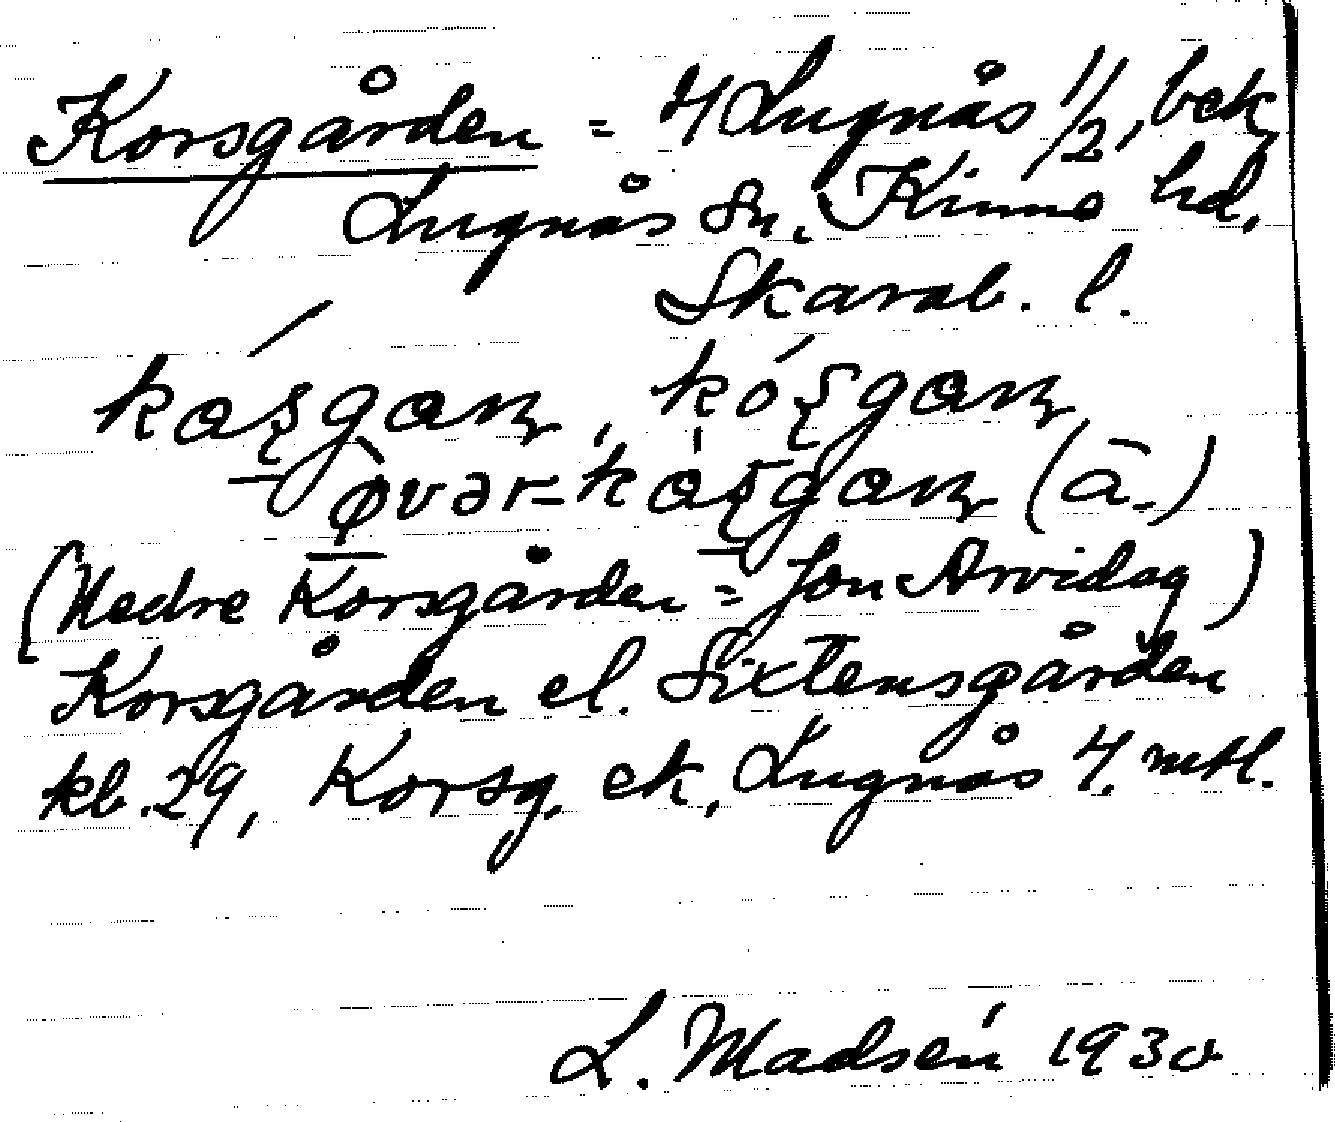 Korsgården = 4 Lugnås 1/2, bek,
Lugnås sn. Kinne hd.
Skarab. l.
(ā.)
(Nedre Korsgården = Jon Arvidsg)
Korsgården el. Sixtensgården
kb. 29, Korsg. ek, Lugnås 4. mtl.
L. Madsén 1930